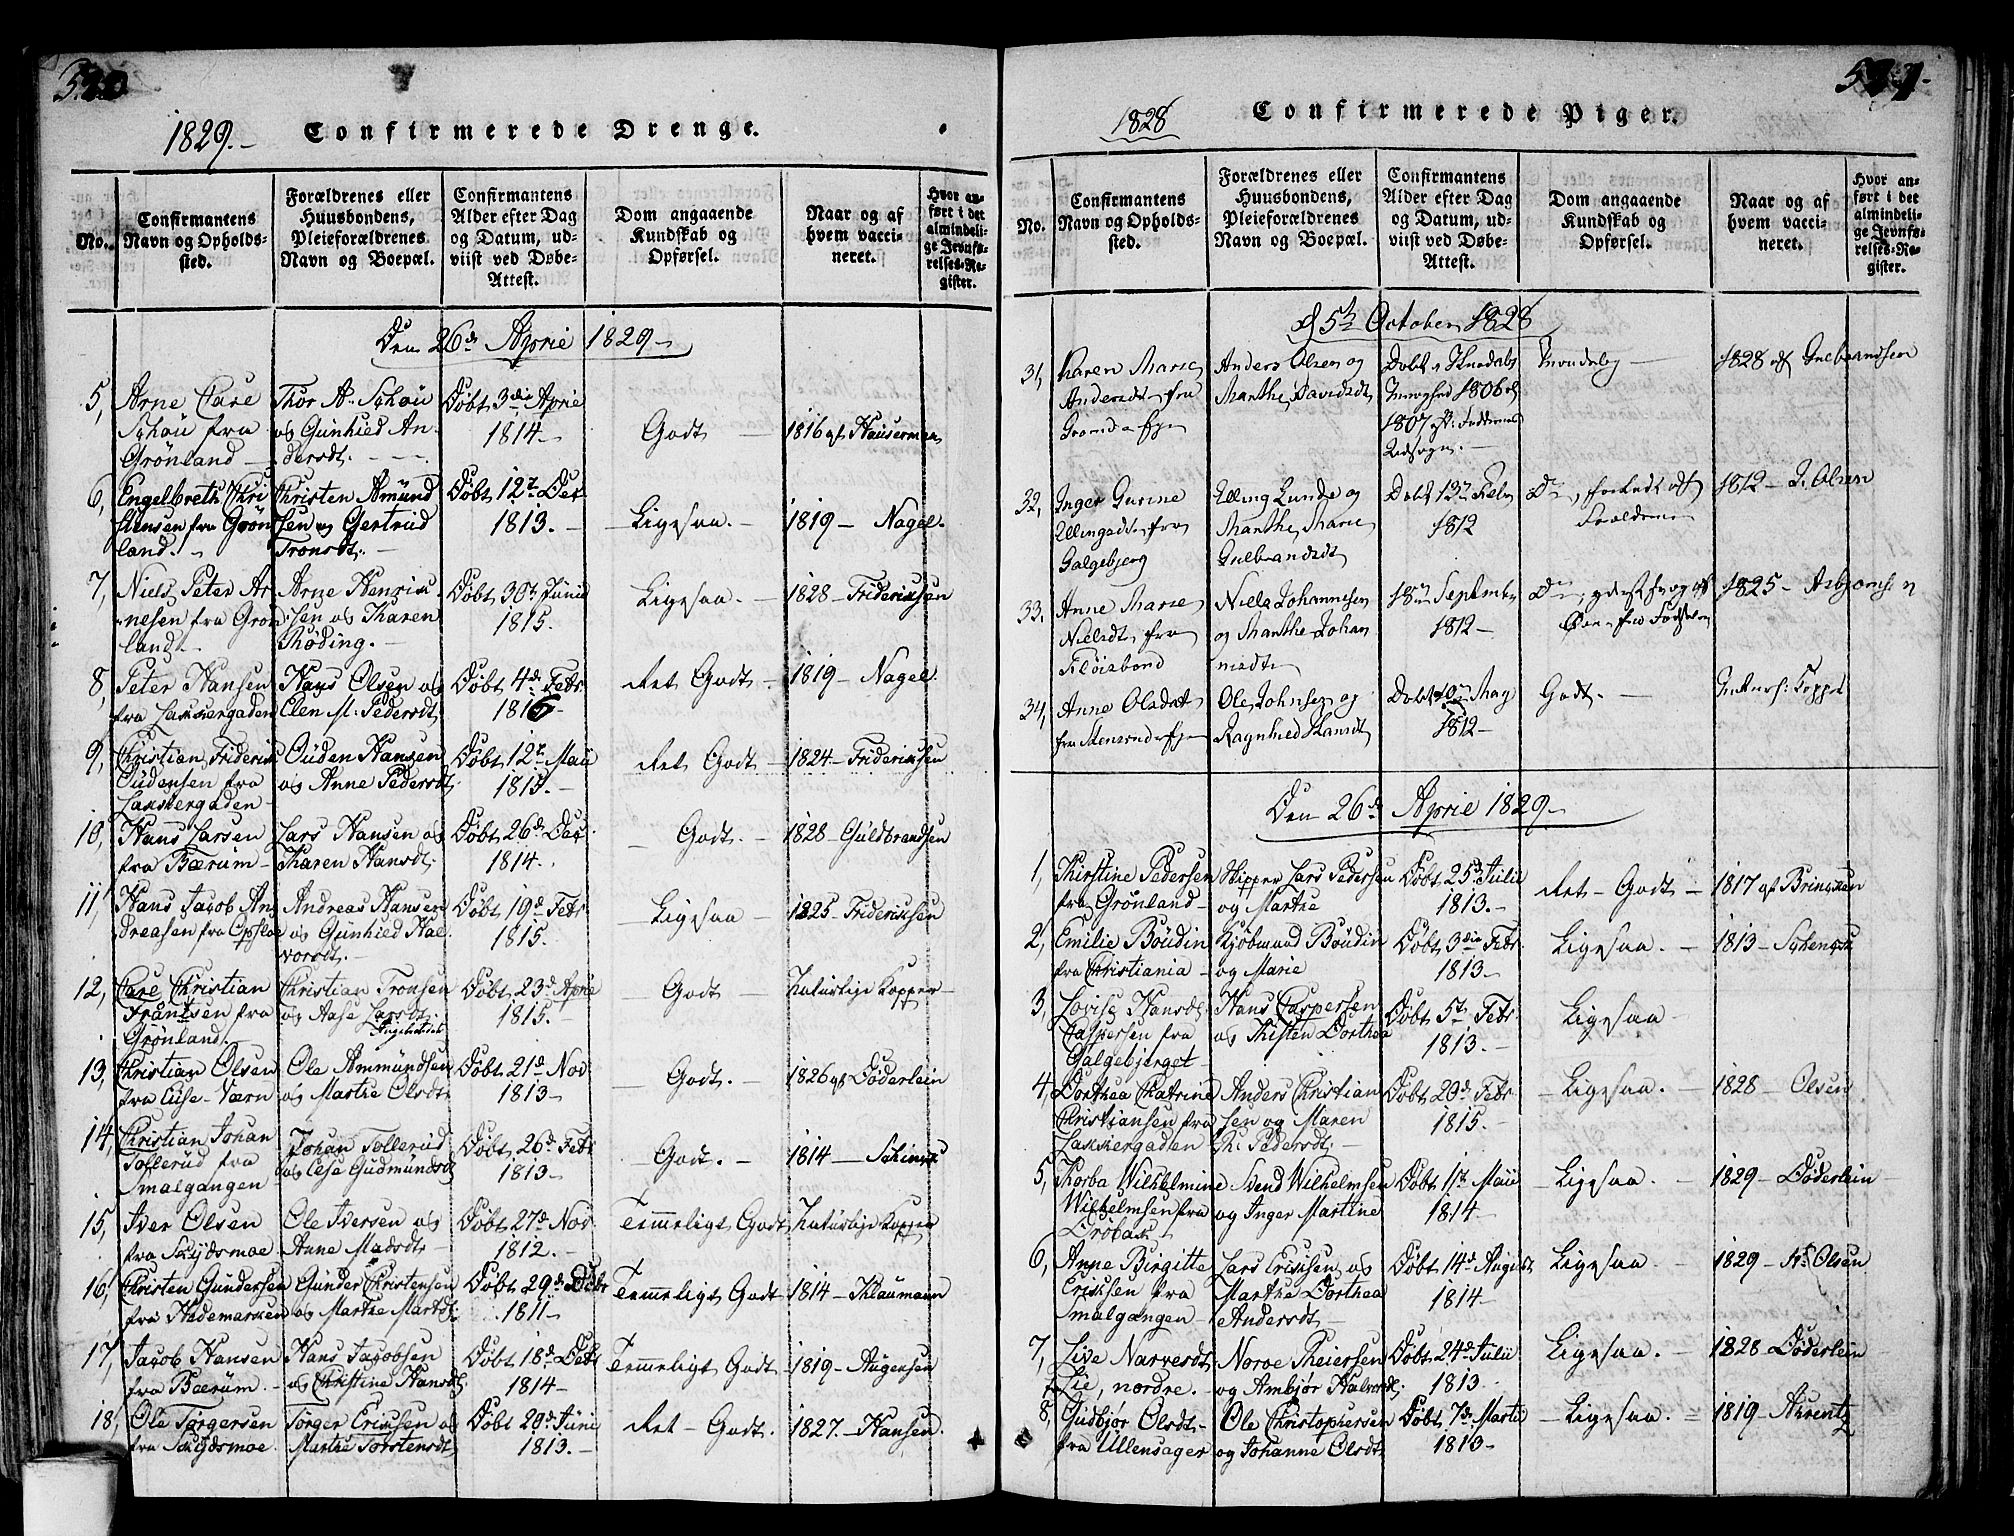 520
1829.—
Confirmerede Drenge.
No.
Confirmantens
Navn og Opholds-
sted.
Forældrenes eller
Huusbondens,
Pleieforældrenes
Navn og Boepæl.
Confirmantens
Alder efter Dag
og Datum, ud-
viist ved Døbe-
Attest.
Dom angaaende
Kundskab og
Opførsel.
Naar og af
hvem vacci-
neret.
Hvor an-
ført i det
almindeli-
ge Jevnfø-
relses-Re-
gister.
Den 26de April 1829.—
5, Arne Carl Thor A. Schou Døbt 3die April
Schou fra og Gunhild An- 1814.— Godt — 1816 af Hauserman
Grønland — dersdt.
6, Engelbreth Chri Christen Amund Døbt 12te Dec
stensen fra Grøn sen og Gertrud 1813.— — Ligesaa. — 1819 — Nagel.
land. Tronsdt.
7, Niels Peter Ar Arne Henrik Døbt 30te Junii Ligesaa. — 1828 — Fridericksen
nesen fra Grøn sen og Karen 1815.
land. Røding.
8, Peter Hansen Hans Olsen og Døbt 4de Febr. det Godt — 1819 — Nagel.
fra Lakkergaden Elen M. Pedersdt. 1815
9, Christian Friderik Ouden Hansen Døbt 12te Maii det Godt — 1824 — Fridericksen
Oudensen fra og Anne Pedersdt. 1813.—
Lakkergaden —
10, Hans Larsen Lars Hansen og Døbt 26de Dec. Godt. — 1828 — Guldbrandsen
fra Bærum — Karen Hansdt. 1814.
11, Hans Jacob An Andreas Hansen Døbt 19de Febr — Ligesaa — 1825 — Fridericksen
dreasen fra Opsloe og Gunhild Hal 1815.
vorsdt.
12, Carl Christian Christian Tronsen Døbt 23de April — Godt — Naturlige Kopper —
Frantsen fra og Aase Larsdt. 1815.
Grønland.
13, Christian Olsen Ole Ammundsen Døbt 21de Nov — Godt. — 1826 af Døderlein
fra Ense-Værn og Marthe Olsdt. 1813 —
14, Christian Johan Johan Tollerud Døbt 26de Febr — Godt. — 1814 —
Tollerud fra og Else Gudmundsdt. 1813 —
Smalgangen
15, Iver Olsen Ole Iversen og Døbt 27de Nov Temmeligt Godt Naturlige Kopper
fra Skydsmoe Anne Madsdt. 1812.—
16, Christen Gundersen Gunder Christensen Døbt 29de Octbr Temmeligt Godt 1814 — Klaumann
fra Hedemarken og Marthe Martdt. 1811 —
17, Jacob Hansen Hans Jacobsen Døbt 18de Oct Temmeligt Godt 1819 — Augensen
fra Bærum. og Christine Hansdt. 1814 —
18, Ole Torgersen Torger Ericksen og Døbt 20de Junii det — Godt. 1827. — Hansen.
fra Skydsmoe Marthe Torstensdt. 1813.—
521
1828
Confirmerede Piger.
No.
Confirmantens
Navn og Opholds-
sted.
Forældrenes eller
Huusbondens,
Pleieforældrenes
Navn og Boepæl.
Confirmantens
Alder efter Dag
og Datum, ud-
viist ved Døbe-
Attest.
Dom angaaende
Kundskab og
Opførsel.
Naar og af
hvem vacci-
neret.
Hvor an-
ført i det
almindeli-
ge Jevnfø-
relses-Re-
gister.
d 5te October 1828
31, Karen Marie Anders Olsen og Døbt i 1828 af Gulbrandsen
Andersdt fra Marthe Davidsdt 1806 el.
1807
32, Inger Gurine Elling Lunde og Døbt 13de Febr Do, 1812 — J. Olsen
Ellingsdt fra Marthe Marie 1812
Galgebjerg Gulbrandsdt
33, Anne Marie Niels Johannesen 18de September Do, 1825 — Asbjørnsen
Nielsdt fra og Marthe Johan 1812 —
Fløisbond nesdt
34, Anne Olsdat Ole Johnsen og Døbt 10de May Godt. — Naturl: Kopper
fra Ragnhild 1812 —
Den 26de April 1829 —
1, Kirstine Pedersen Skipper Lars Pedersen Døbt 25de Julii det — Godt — 1817 af Brincken
fra Grønland — og Marthe 1813.—
2, Emilie Boudin Kjøbmand Boudin Døbt 3die Febr. Ligesaa. — 1813 —
fra Christiania og Marie 1813 —
3, Lovise Hansdt. Hans Caspersen Døbt 5te Febr Ligesaa —
Caspersen fra og Kisten Dorthea 1813.—
Galgebjerget
4, Dorthea Catrine Anders Christian Døbt 20de Febr — Ligesaa. — 1828 — Olsen
Christiansen fra sen og Maren 1815.
Lakkergaden Pedersdt.
5, Thorba Wilhelmine Svend Wilhelmsen Døbt 11te Maii Ligesaa. — 1829 — Døderlein
Wilhelmsen fra og Inger Martine 1814 —
Drøbak
6, Anne Birgitte Lars Ericksen og Døbt 14de August Ligesaa. — 1829 — Hs Olsen
Ericksen fra Marthe Dorthea 1814 —
Smalgangen Andersdt —
7, Live Narvesdt. Norve Theiersen Døbt 24de Julii Ligesaa. — 1828 Døderlein
Lie, nordre. og Ambjør Halvorsdt. 1813 —
8, Gudbjør Olsdt. Ole Christophersen Døbt 7de Martii — Ligesaa. — 1819 — Ahrentz
fra Ullensager og Johanne Olsdt. 1813 —